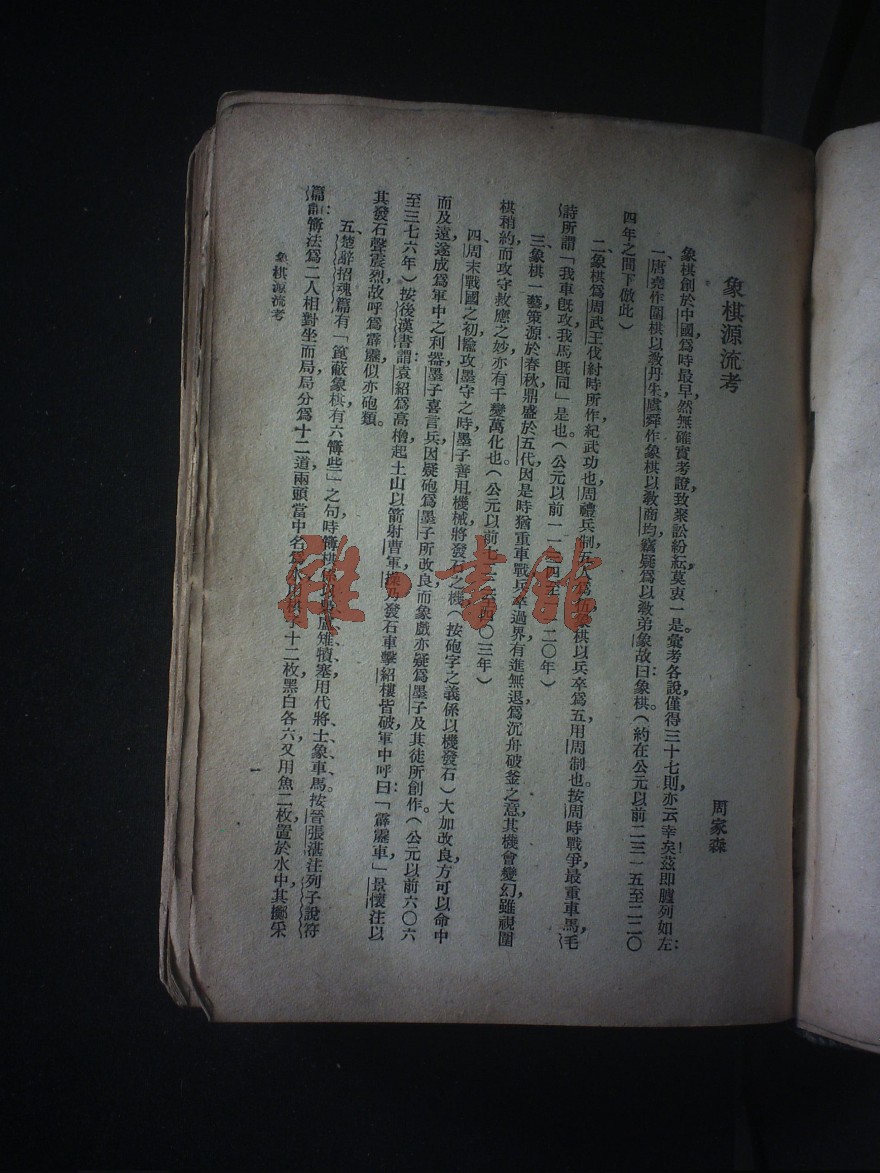 象棋源流考
周家森
象棋創於中國,爲時最早,然無確實考證,致聚訟紛紜,莫衷一是。彙考各說,僅得三十七則,亦云幸矣!茲即臚列如左:
一、唐堯作圍棋以教丹朱,虞舜作象棋以教商均,竊疑爲以教弟象,故曰:象棋。(約在公元以前二三一五至二二〇
四年之間下倣此)
二、象棋爲周武王伐紂時所作,紀武功也。周禮兵制,五人爲伍,象棋以兵卒爲五,用周制也。按周時戰爭最重車馬,毛
詩所謂「我車旣攻,我馬旣同」是也。(公元以前一一三四至一一二〇年)
三、象棋一藝,策源於春秋,鼎盛於五代,因是時猶重車戰,兵卒過界,有進無退,爲沉舟破釜之意,其機會變幻,雖視圍
棋稍約,而攻守救應之妙,亦有千變萬化也。(公元以前七二二至四〇三年)
四、周末戰國之初,輸攻墨守之時,墨子善用機械,將發石之機(按砲字之義係以機發石)大加改良,方可以命中
而及遠,遂成爲軍中之利器,墨子喜言兵,因疑砲爲墨子所改良,而象戲亦疑爲墨子及其徒所創作。(公元以前六〇六
至三七六年)按後漢書謂:袁紹爲高櫓,起土山,以箭射曹軍,操乃發石車擊紹樓,皆破,軍中呼曰:「霹靂車」,景懷注以
其發石聲震烈,故呼爲霹靂,似亦砲類。
五、楚辭招魂篇有「箟蔽象棋,有六簙些」之句,時簙棋 盧雉犢塞,用代將、士、象、車、馬。按晉張湛注列子說符
篇:簙法爲二人相對坐而局,局分爲十二道,兩頭當中名爲水,用棋十二枚,黑白各六,又用魚二枚,置於水中,其擲采
象棋源流考
一
雜·書館